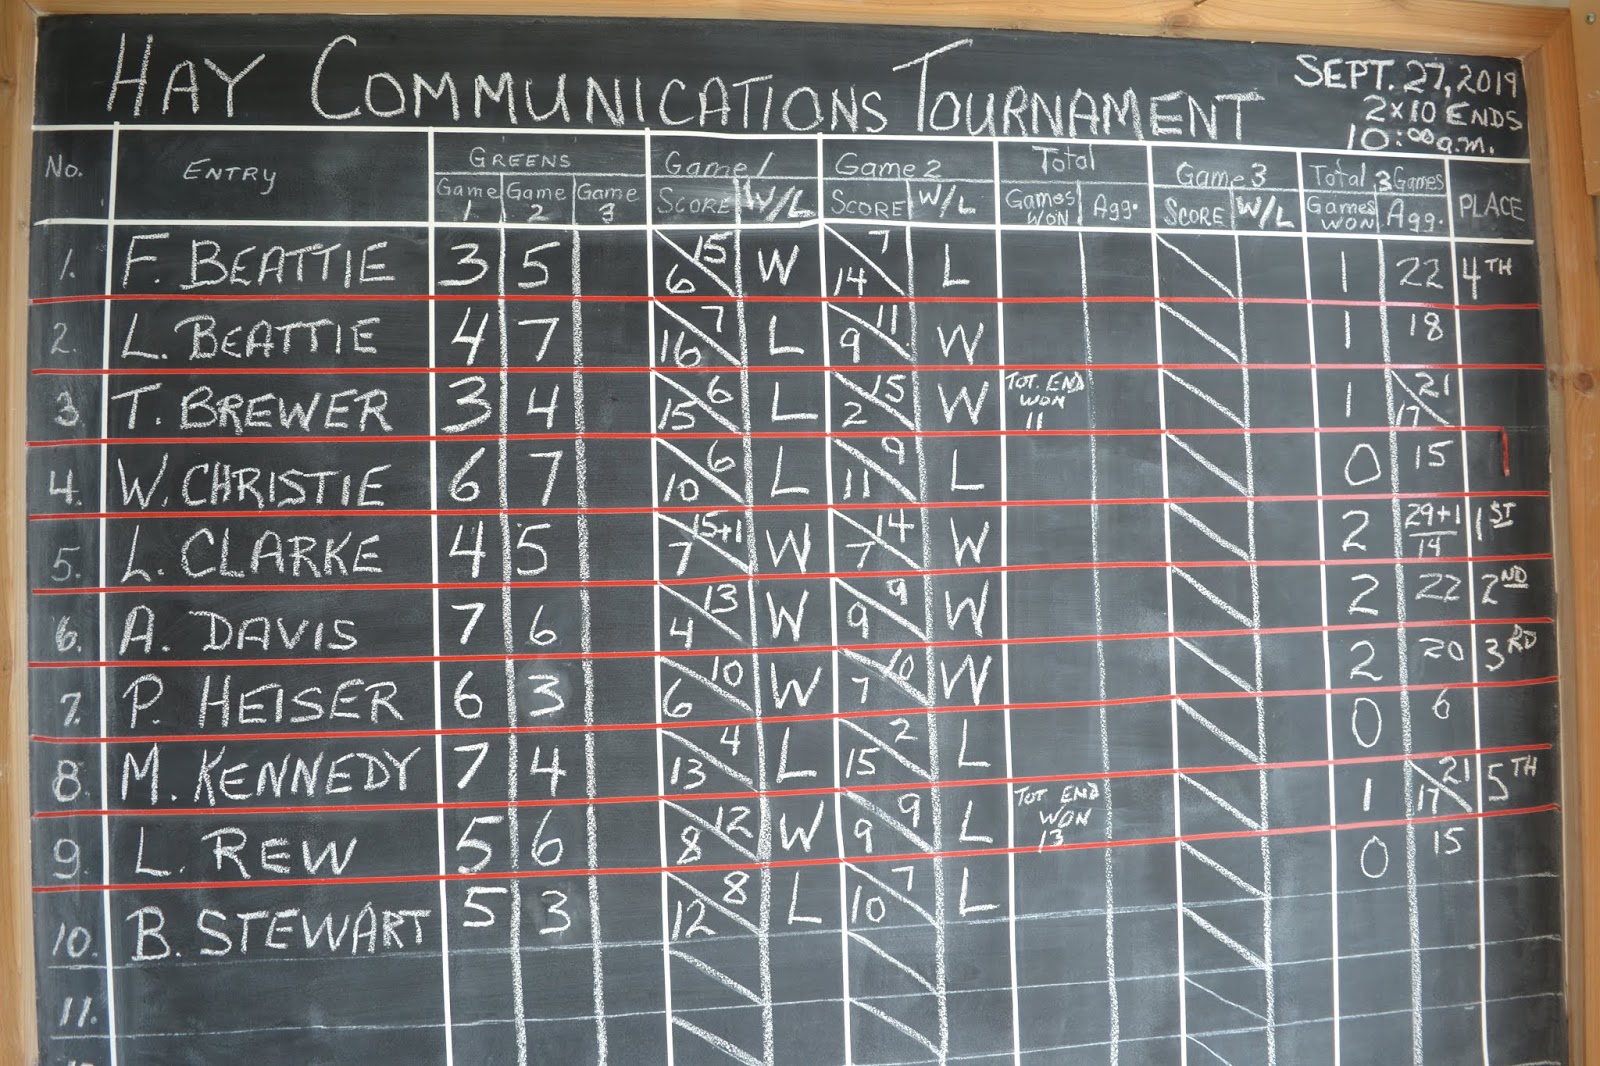 HAY COMMUNICATIONS TOURNAMENT
SEPT. 27, 2019
2×10 ENDS
10:00 a.m.
No. ENTRY GREENS Game 1 Game 2 Total Game 3 Total 3 Games PLACE
Game 1 Game 2 Game 3 SCORE W/L SCORE W/L Games WON Agg. SCORE W/L Games WON Agg.
1. F. BEATTIE 3 5 15/6 W 7/14 L 1 22 4TH
2. L. BEATTIE 4 7 7/16 L 11/9 W 1 18
3. T. BREWER 3 4 6/15 L 15/2 W TOT. END WON 11 1 21/17
4. W. CHRISTIE 6 7 6/10 L 9/11 L 0 15
5. L. CLARKE 4 5 15+1/7 W 14/7 W 2 29+1/14 1ST
6. A. DAVIS 7 6 13/4 W 9/9 W 2 22 2ND
7. P. HEISER 6 3 10/6 W 10/7 W 2 20 3RD
8. M. KENNEDY 7 4 4/13 L 2/15 L 0 6
9. L. REW 5 6 12/8 W 9/9 L TOT. END WON 13 1 21/17 5TH
10. B. STEWART 5 3 8/12 L 7/10 L 0 15
11.